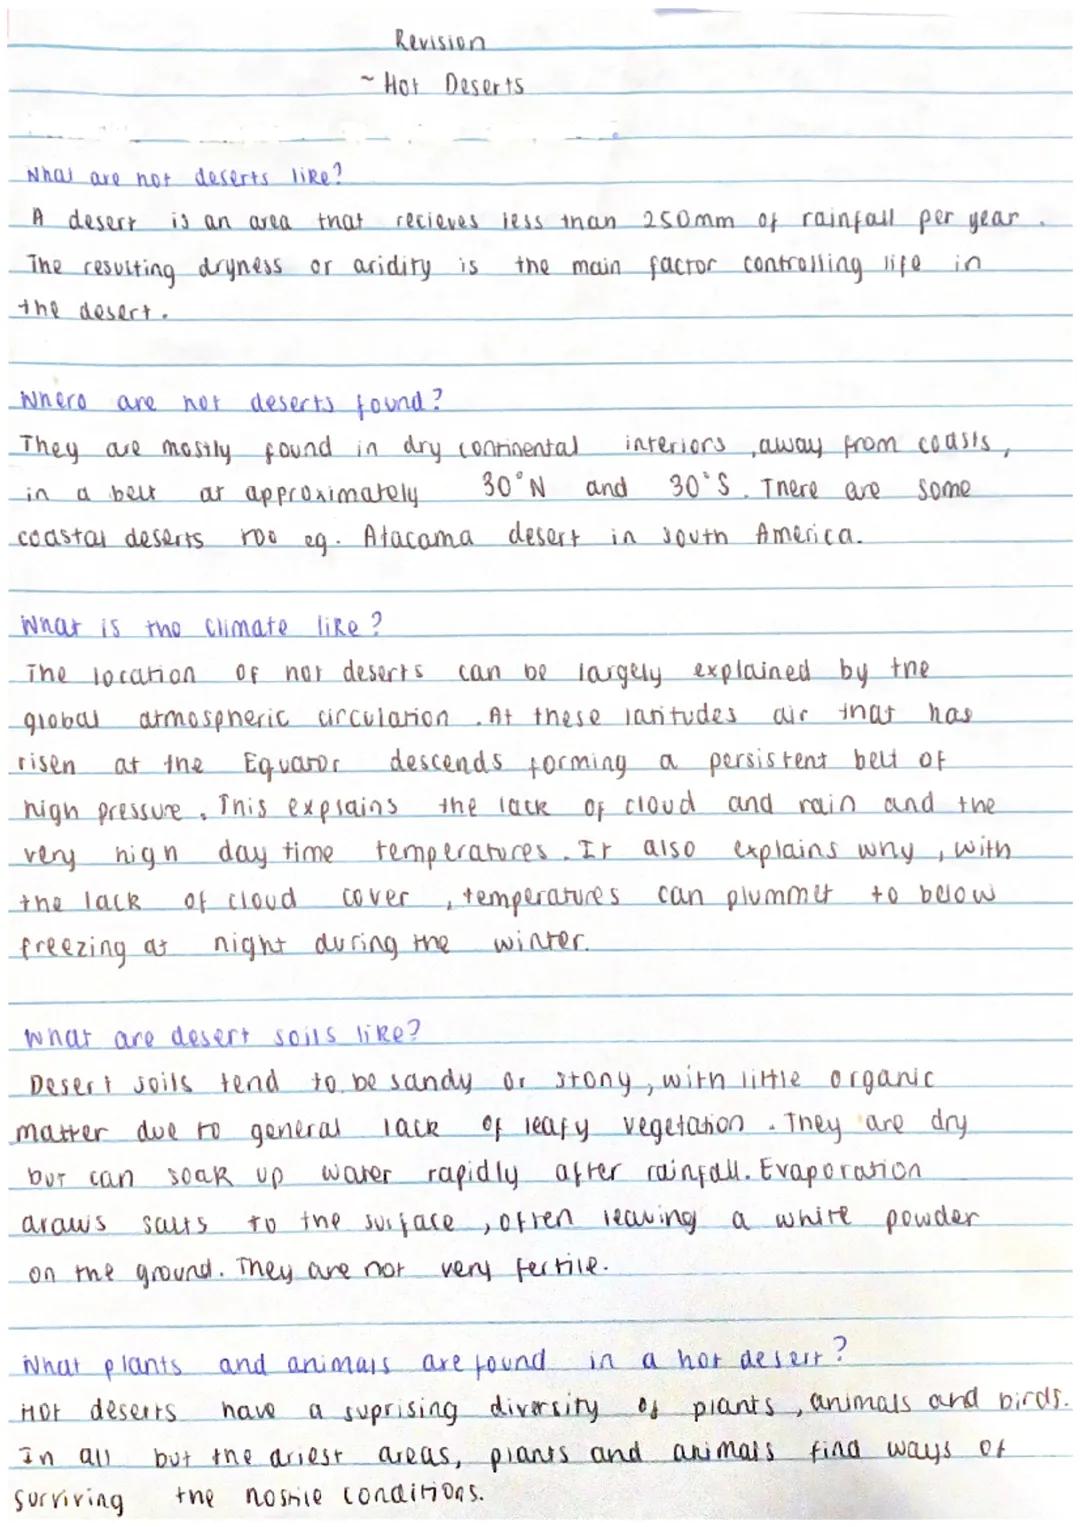 Revision
~ Hot Deserts
What are hot deserts like?
A desert is an area that recieves less than 250mm of rainfall per year.
The resulting dryness or aridity is the main factor controlling life in
the desert.
Where are hot deserts found?
They are mostly found in dry continental interiors, away from coasts,
in a belt at approximately 30°N and 30°S. There are some
coastal deserts too eg. Atacama desert in south America.
What is the climate like?
The location of hot deserts can be largely explained by the
global atmospheric circulation. At these latitudes air that has
risen at the Equator descends forming a persistent belt of
high pressure. This explains the lack of cloud and rain and the
very high day time temperatures. It also explains why, with
the lack of cloud cover, temperatures can plummet to below
freezing at night during the winter.
What are desert soils like?
Desert soils tend to be sandy or stony, with little organic
matter due to general lack of leafy vegetation. They are dry
but can soak up water rapidly after rainfall. Evaporation
draws salts to the surface, often leaving a white powder
on the ground. They are not very fertile.
What plants and animals are found in a hot desert?
Hot deserts have a suprising diversity of plants, animals and birds.
In all but the driest areas, plants and animals find ways of
surviving the hostile conditions.